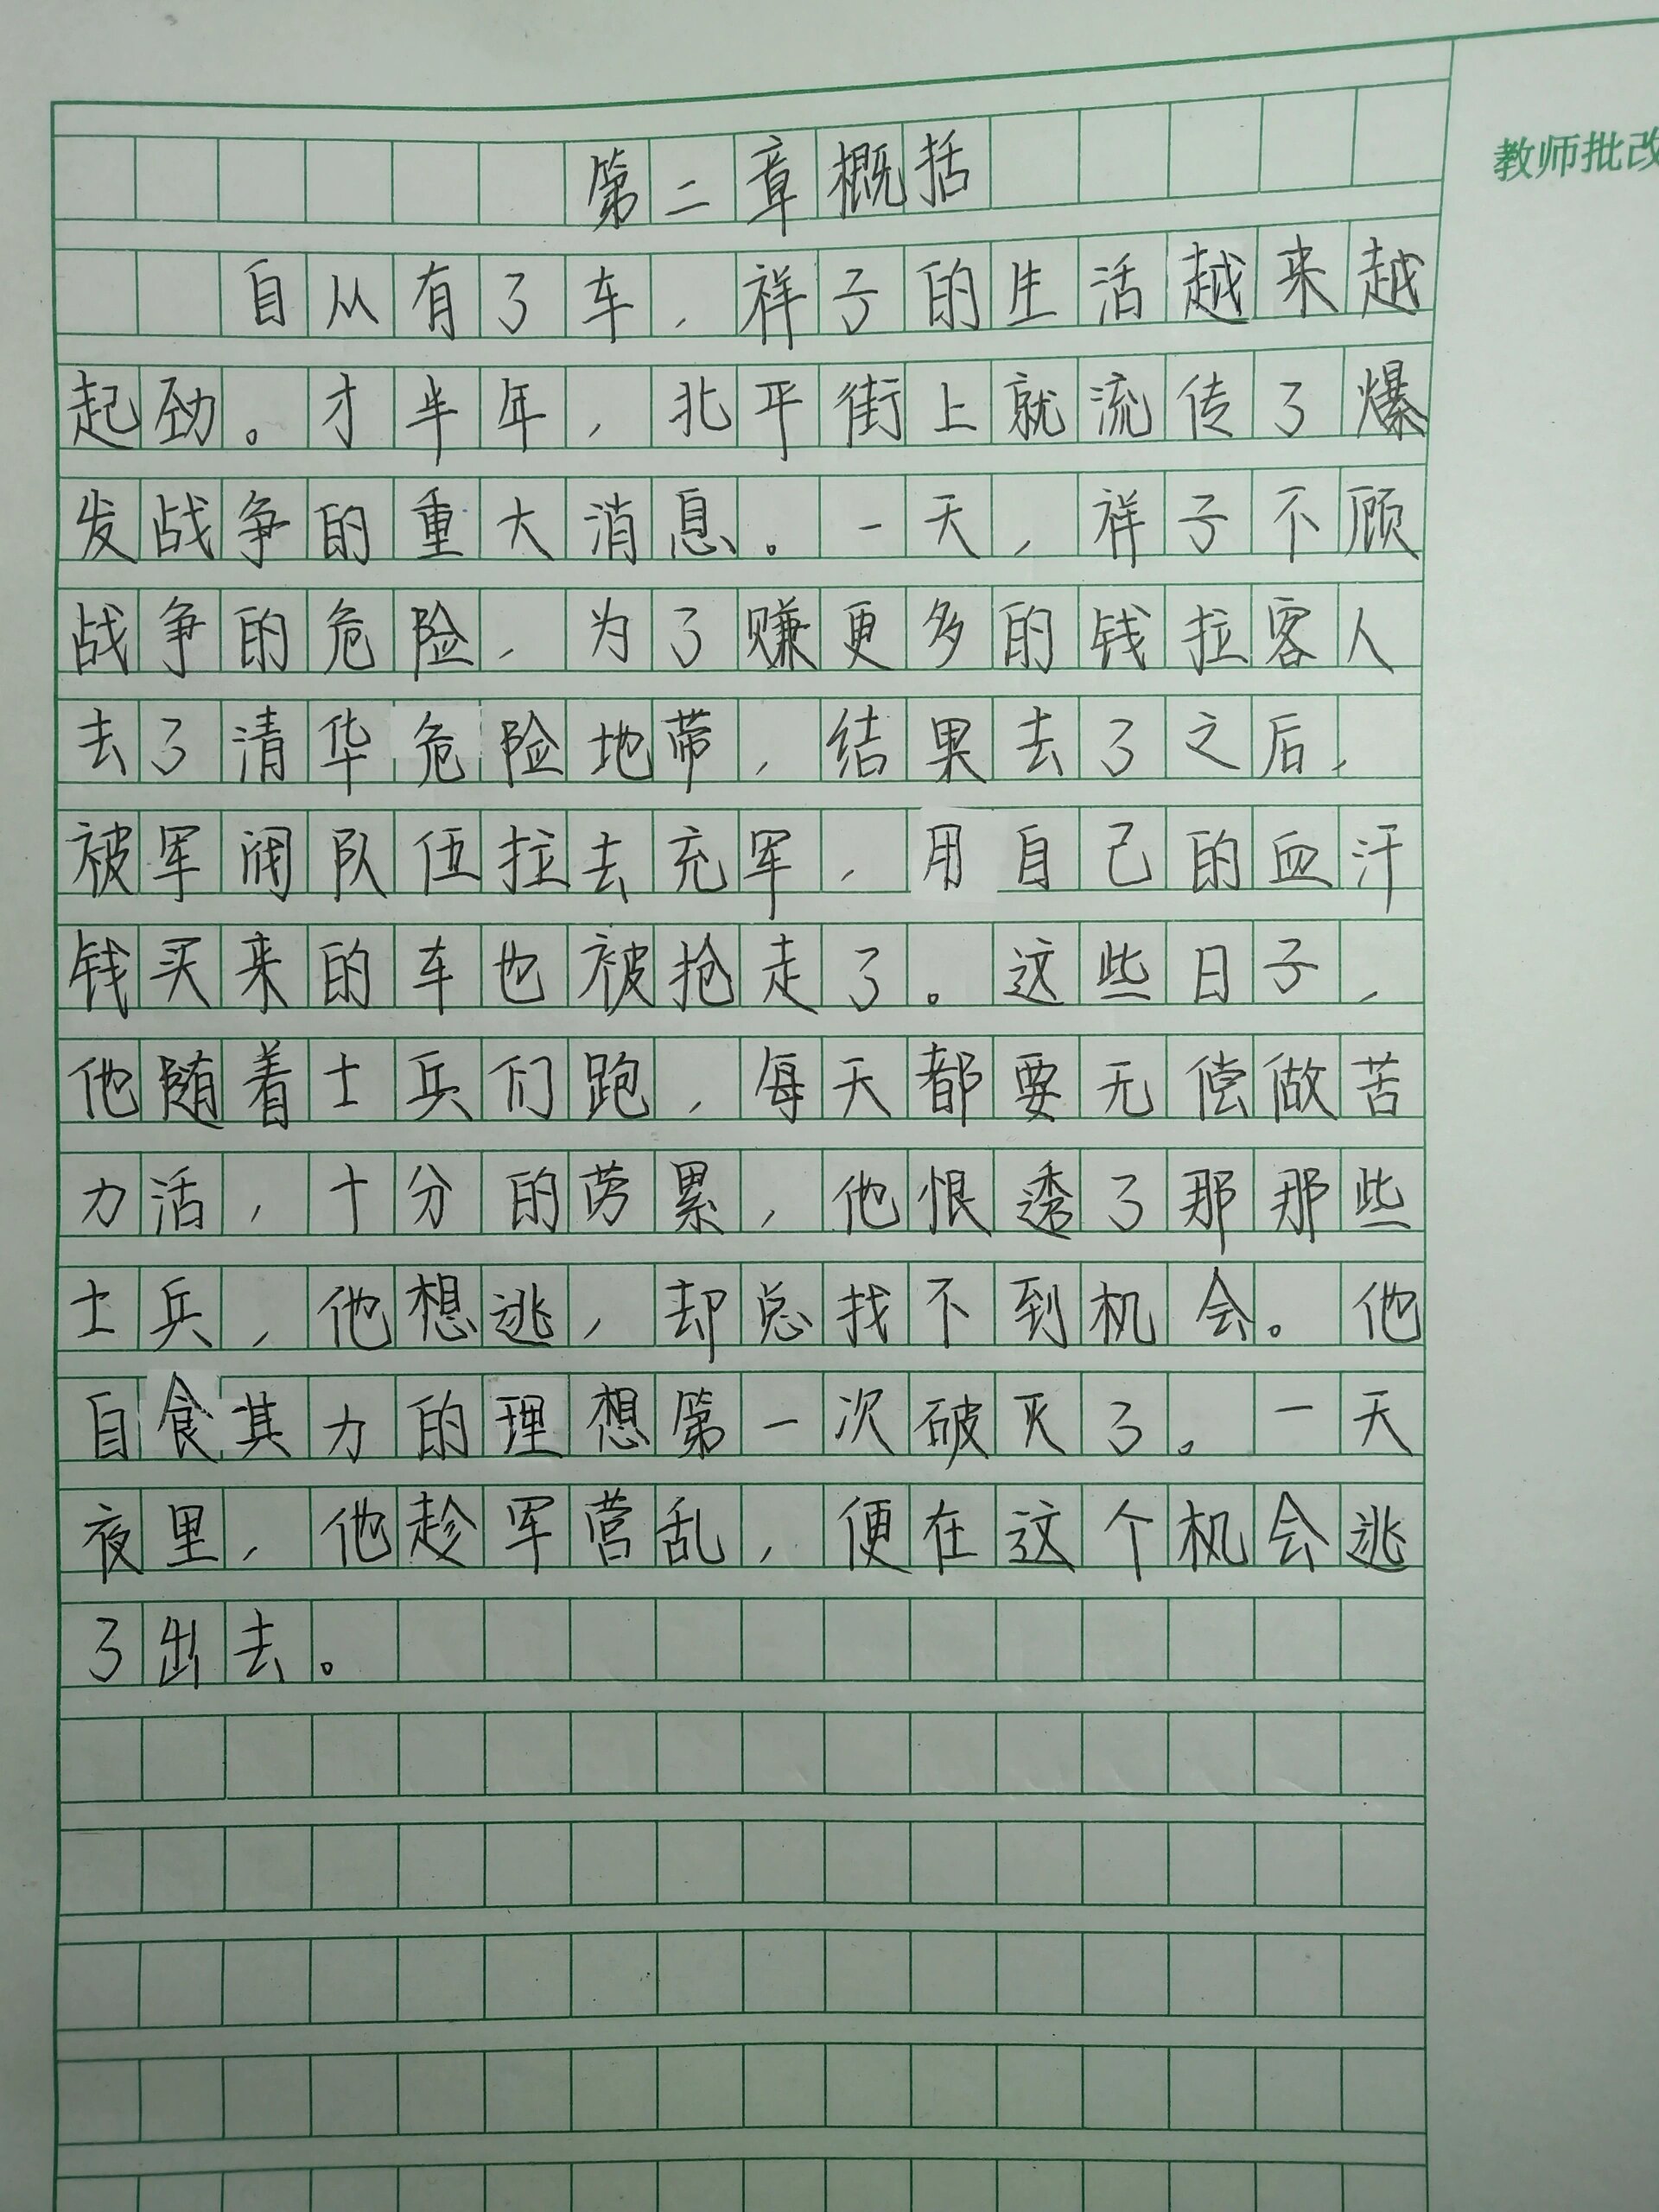 教师批改
第二章概括
自从有了车，祥子的生活越来越
起劲。才半年，北平街上就流传了爆
发战争的重大消息。一天，祥子不顾
战争的危险，为了赚更多的钱拉客人
去了清华危险地带，结果去了之后，
被军阀队伍拉去充军，用自己的血汗
钱买来的车也被抢走了。这些日子，
他随着士兵们跑，每天都要无偿做苦
力活，十分的劳累，他恨透了那那些
士兵，他想逃，却总找不到机会。他
自食其力的理想第一次破灭了。一天
夜里，他趁军营乱，便在这个机会逃
了出去。